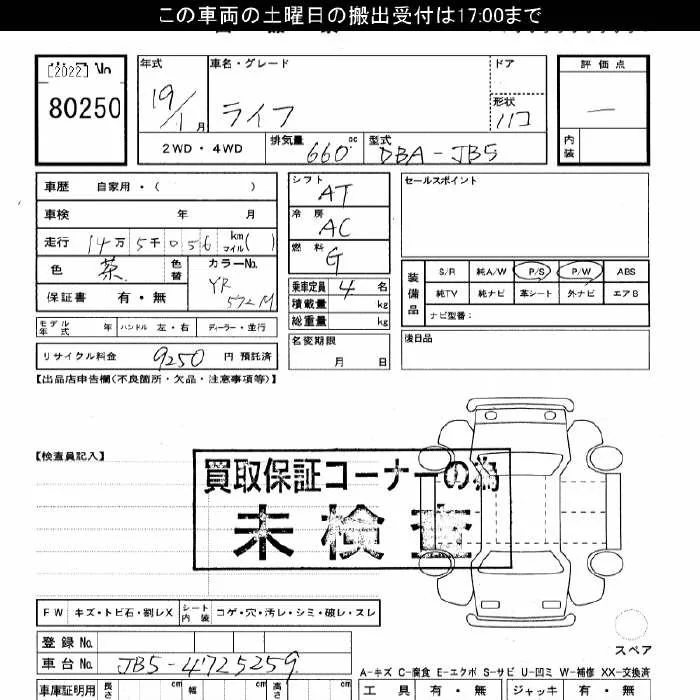 この車両の土曜日の搬出受付は17:00まで
[2022] No
80250
年式 19/1月
車名・グレード ライフ
ドア
形状 ハコ
評価点 —
内装
2WD・4WD
排気量 660 cc
型式 DBA-JB5
車歴 自家用・( )
車検 年 月
走行 14万5千056 km マイル( )
色 茶 色替
カラーNo. YR572M
保証書 有・無
モデル年式 年 ハンドル 左・右 ディーラー・並行
リサイクル料金 9250 円 預託済
シフト AT
冷房 AC
燃料 G
乗車定員 4 名
積載量 kg
総重量 kg
名変期限
月 日
セールスポイント
装備品
S/R 純A/W P/S P/W ABS
純TV 純ナビ 革シート 外ナビ エアB
ナビ型番:
後日品
【出品店申告欄(不良箇所・欠品・注意事項等)】
【検査員記入】
買取保証コーナーの為
未検査
FW キズ・トビ石・割レX シート内装 コゲ・穴・汚レ・シミ・破レ・スレ
スペア
登録No.
車台No. JB5-4725259
A-キズ C-腐食 E-エクボ S-サビ U-凹ミ W-補修 XX-交換済
車庫証明用 長さ cm 幅 cm 高さ cm
工具 有・無 ジャッキ 有・無